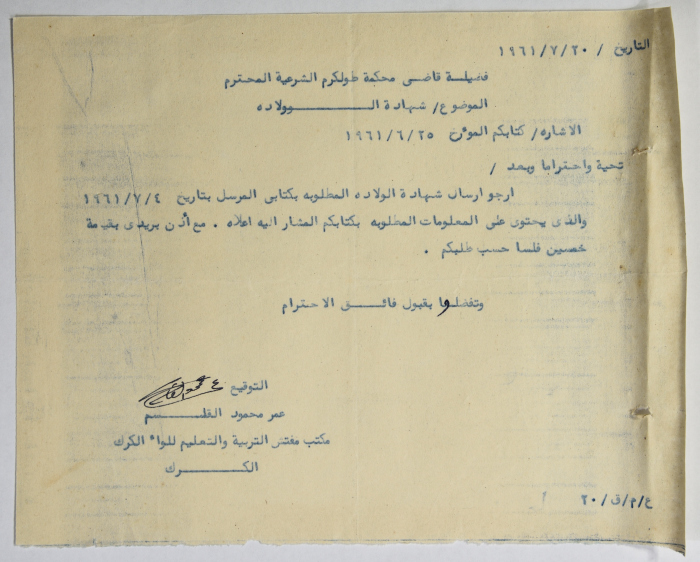 التاريخ / ١٩٦١/٧/٢٠
فضيلة قاضي محكمة طولكرم الشرعية المحترم
الموضوع/ شهادة الـــــــــولاده
الاشاره/ كتابكم المؤرخ ١٩٦١/٦/٢٥
تحية واحتراما وبعد /
ارجو ارسال شهادة الولاده المطلوبه بكتابي المرسل بتاريخ ١٩٦١/٧/٤
والذي يحتوى على المعلومات المطلوبه بكتابكم المشار اليه اعلاه . مع أذن بريدى بقيمة
خمسين فلسا حسب طلبكم .
وتفضلوا بقبول فائـــق الاحترام
التوقيع
عمر محمود القلـــــم
مكتب مفتش التربية والتعليم للواء الكرك
الكـــــــرك
ع/م/ق/٢٠